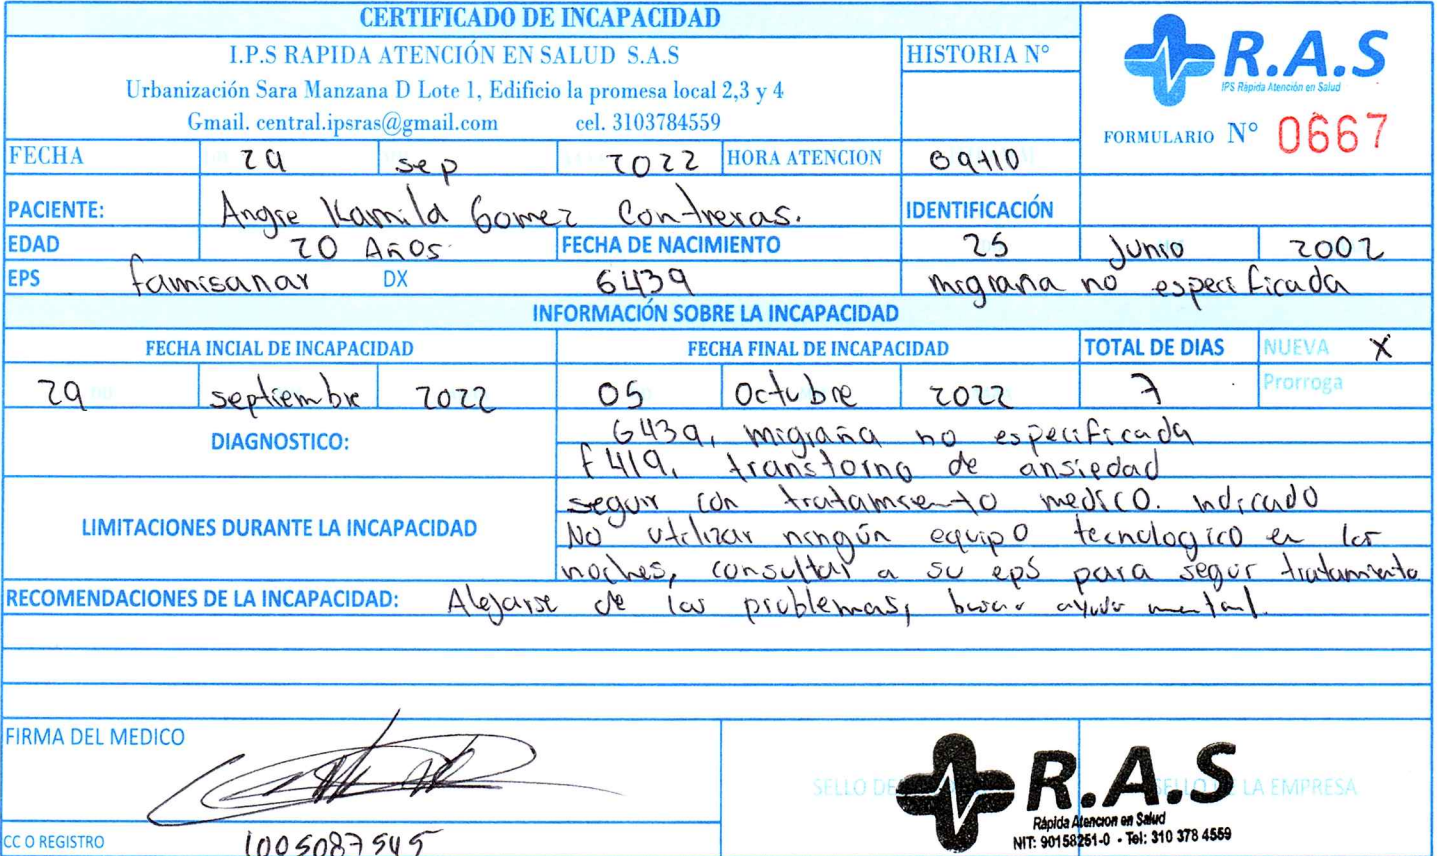 CERTIFICADO DE INCAPACIDAD
I.P.S RAPIDA ATENCIÓN EN SALUD S.A.S
HISTORIA N°
Urbanización Sara Manzana D Lote 1, Edificio la promesa local 2,3 y 4
Gmail. central.ipsras@gmail.com cel. 3103784559
R.A.S
IPS Rápida Atención en Salud
FORMULARIO N° 0667
FECHA 29 sep 2022 HORA ATENCION 09+10
PACIENTE: Angie Kamila Gomez Contreras. IDENTIFICACIÓN
EDAD 20 Años FECHA DE NACIMIENTO 25 Junio 2002
EPS famisanar DX G439 migraña no especificada
INFORMACIÓN SOBRE LA INCAPACIDAD
FECHA INCIAL DE INCAPACIDAD FECHA FINAL DE INCAPACIDAD TOTAL DE DIAS NUEVA X
29 septiembre 2022 05 Octubre 2022 7 Prorroga
DIAGNOSTICO: G439, migraña no especificada
f419, transtorno de ansiedad
LIMITACIONES DURANTE LA INCAPACIDAD
seguir con tratamiento medico. indicado
No utilizar ningún equipo tecnologico en las
noches, consultar a su eps para seguir tratamiento
RECOMENDACIONES DE LA INCAPACIDAD: Alejarse de los problemas, buscar ayuda mental.
FIRMA DEL MEDICO
SELLO DE LA EMPRESA
R.A.S
Rápida Atencion en Salud
NIT: 90158251-0 - Tel: 310 378 4559
CC O REGISTRO 1005087545